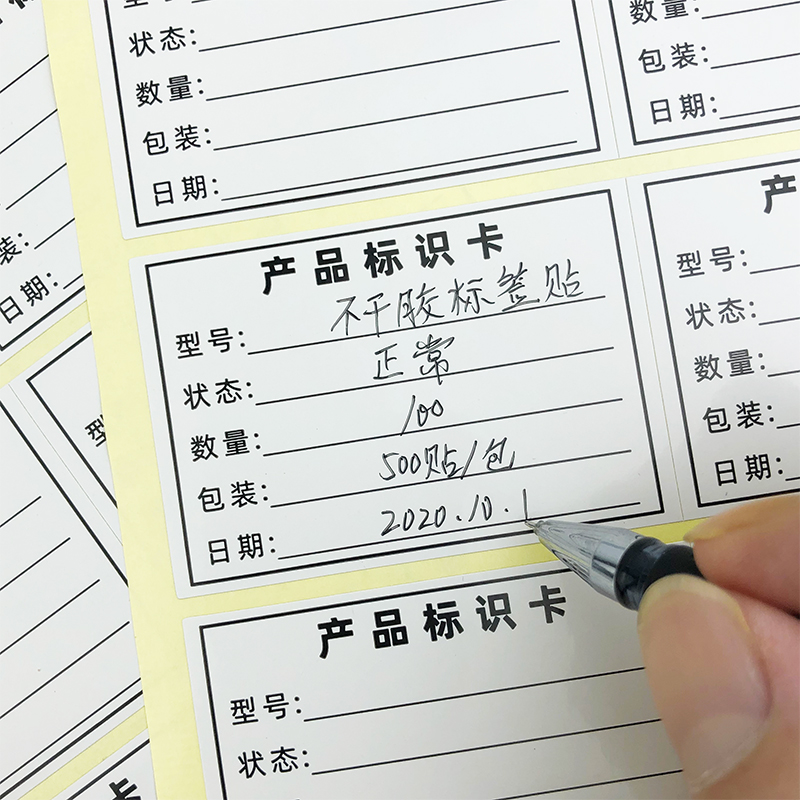 状态:
数量:
包装:
日期:
数量:
包装:
日期:
装:
日期:
产品标识卡
型号: 不干胶标签贴
状态: 正常
数量: 100
包装: 500贴/包
日期: 2020.10.1
产
型号:
状态:
数量:
包装:
日期:
型
产品标识卡
型号:
状态:
卡